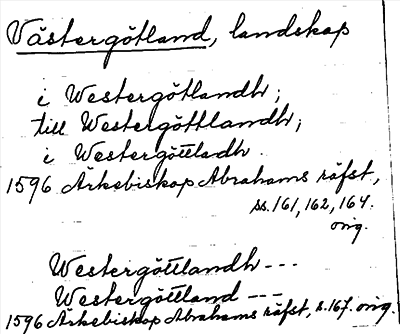 Västergötland, landskap
i Westergötlandh;
till Westergöttlandh;
i Westergöttladh.
1596 Ärkebiskop Abrahams räfst,
ss. 161, 162, 164.
orig.
Westergöttlandh ---
Westergöttland ---
1596 Ärkebiskop Abrahams räfst, s. 167. orig.